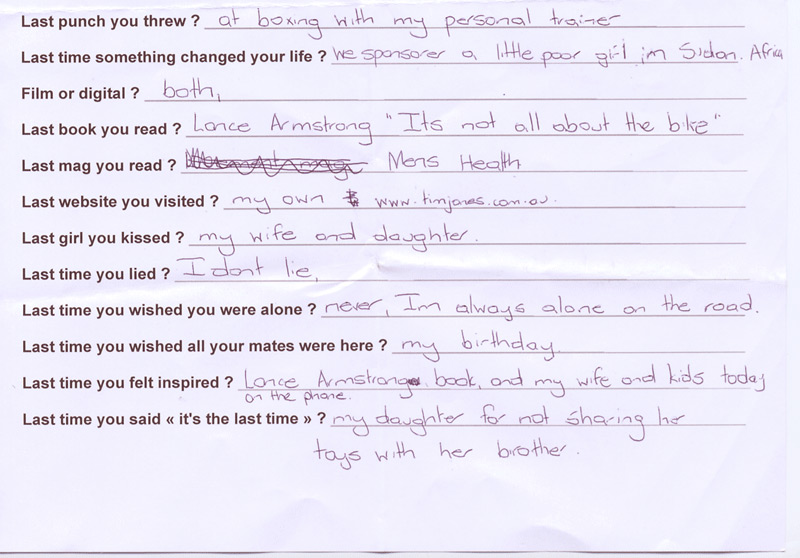 Last punch you threw ? at boxing with my personal trainer
Last time something changed your life ? we sponsorer a little poor girl in Sudan. Africa
Film or digital ? both,
Last book you read ? Lance Armstrong "Its not all about the bike"
Last mag you read ? Mens Health
Last website you visited ? my own www.timjones.com.au.
Last girl you kissed ? my wife and daughter.
Last time you lied ? I dont lie,
Last time you wished you were alone ? never, Im always alone on the road.
Last time you wished all your mates were here ? my birthday.
Last time you felt inspired ? Lance Armstrong book, and my wife and kids today
on the phone.
Last time you said « it's the last time » ? my daughter for not sharing her
toys with her brother.